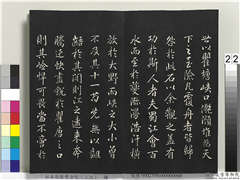 世以瞿塘峽口灩澦堆為天
下之至險凡覆舟者皆歸
咎於此石以余觀之蓋有
功於斯人者夫蜀江會百
水而至於夔瀰漫浩汗橫
放於大野而峽之大小曾
不及其十一苟先無以齟
齬於其間則江之遠來奔
騰迅快盡銳於瞿唐之口
則其嶮悍可畏當不啻於
22